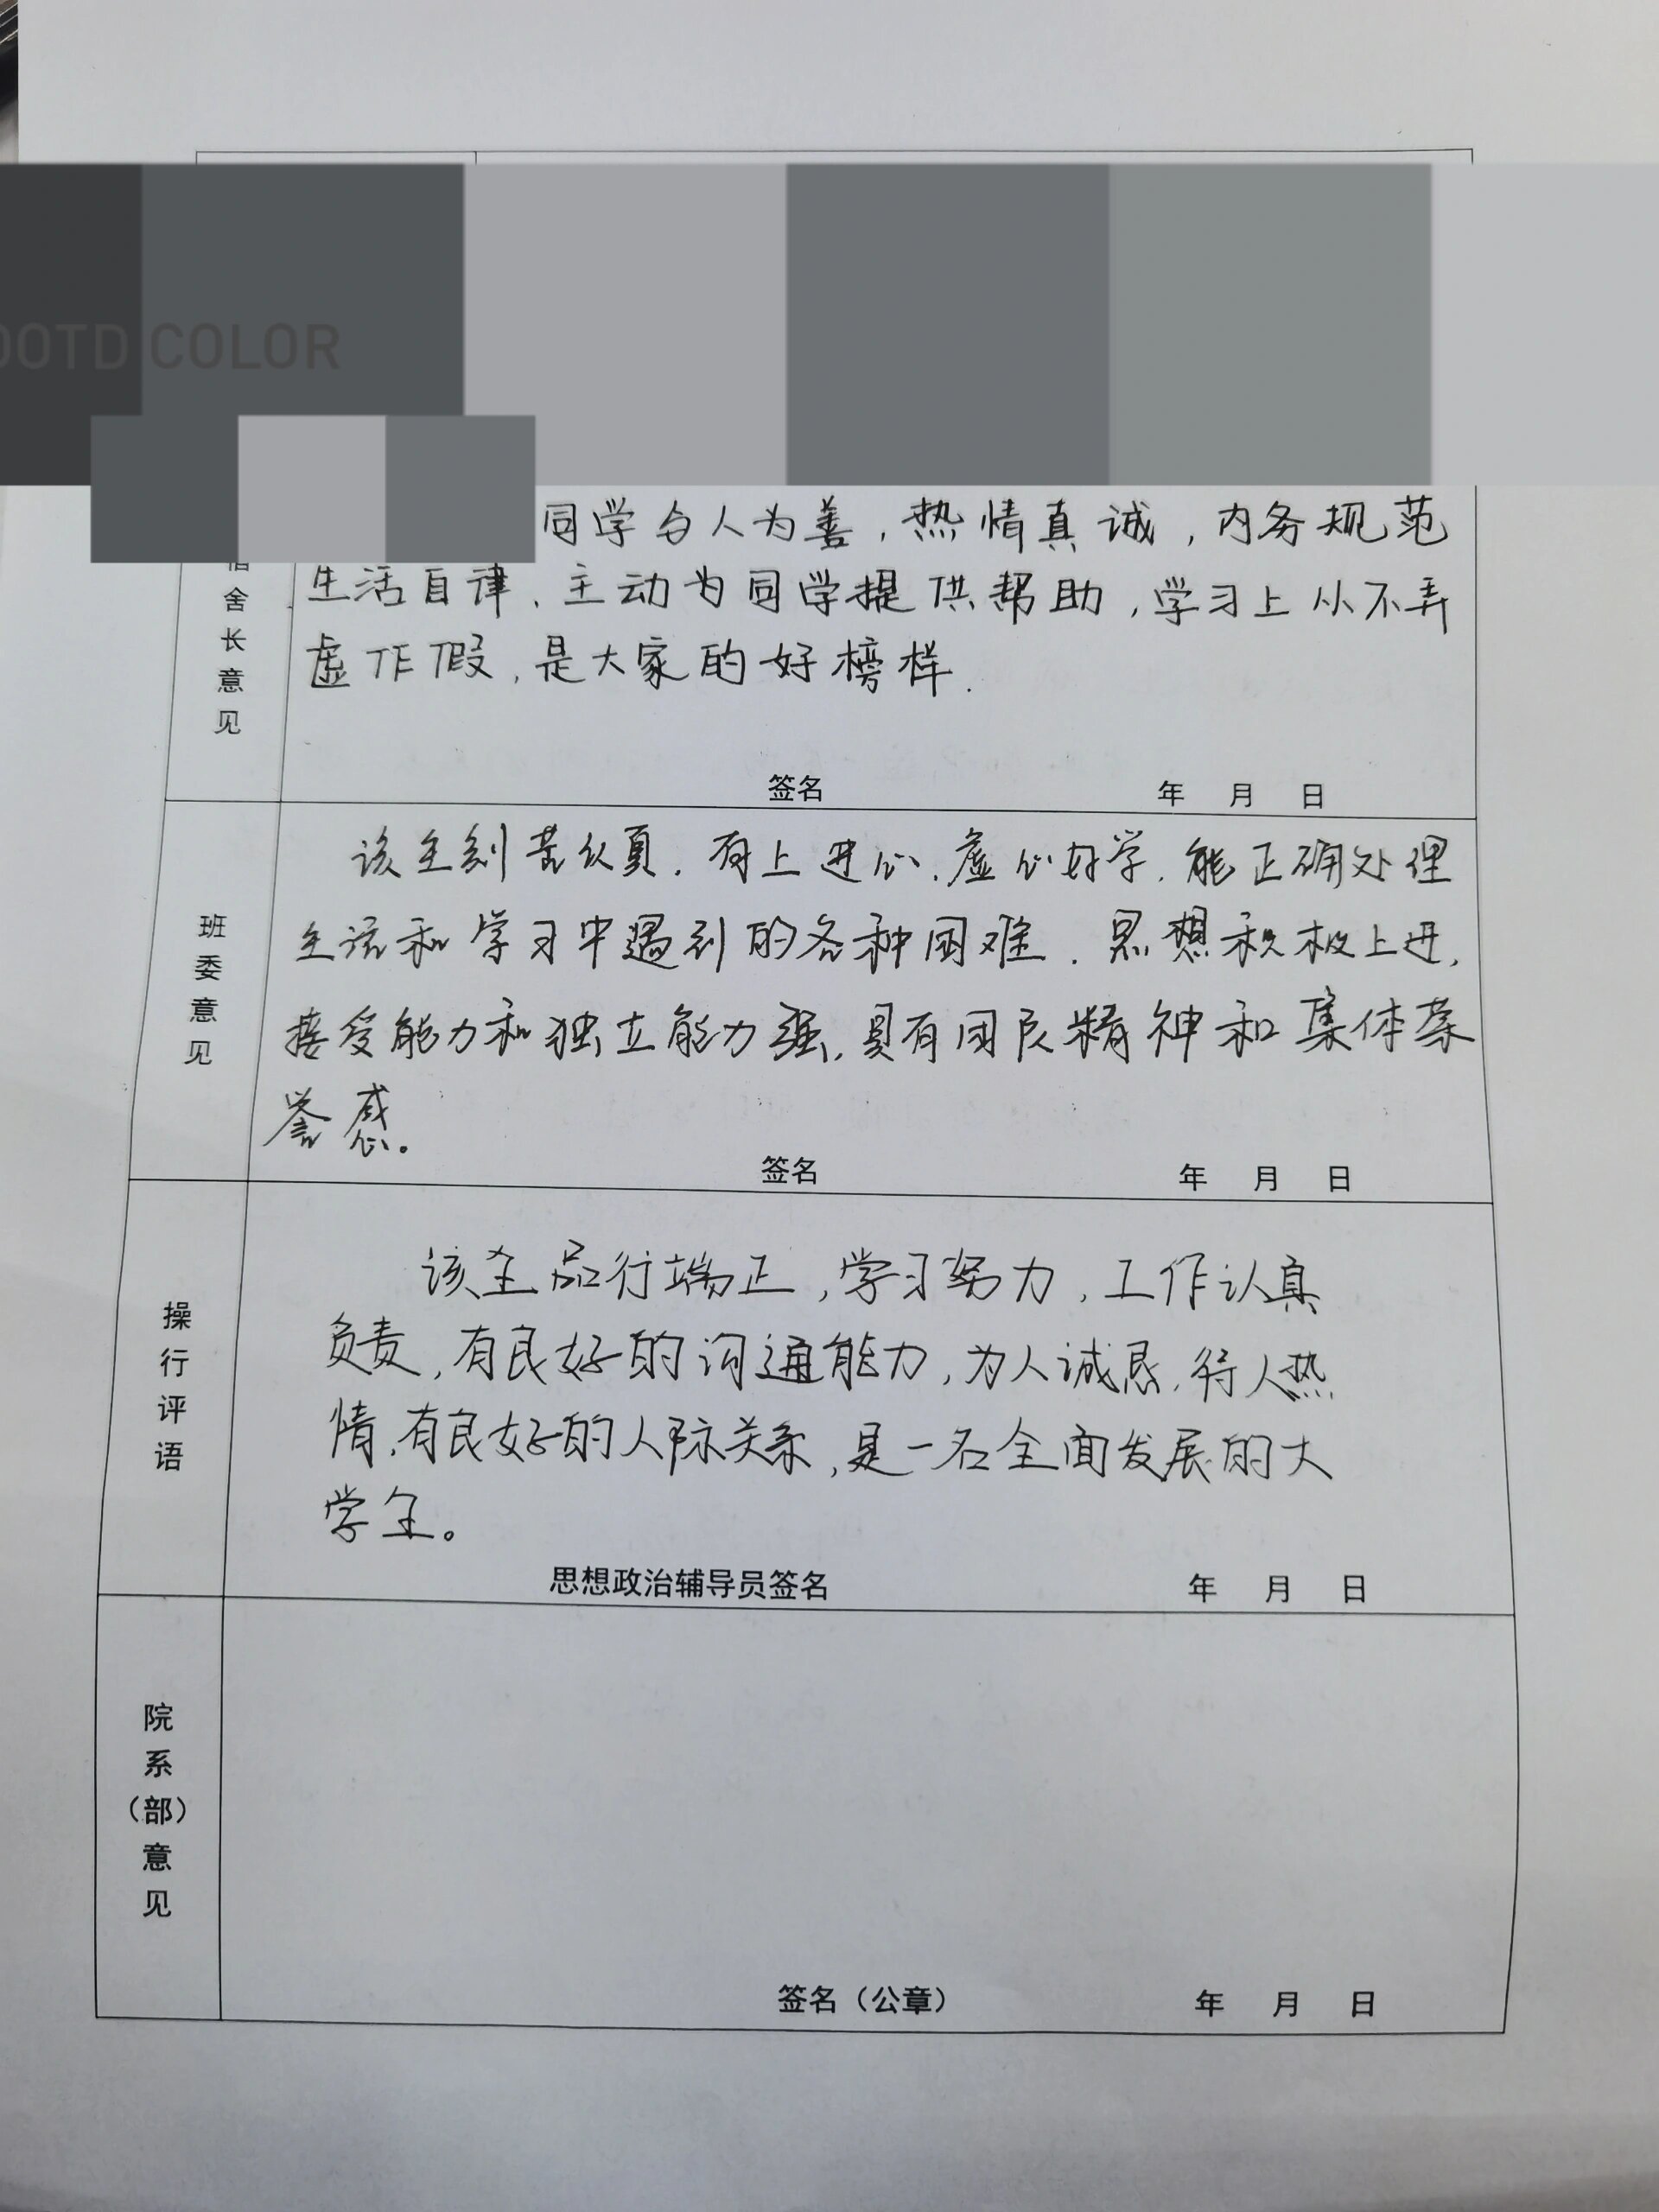 OOTD COLOR
同学与人为善，热情真诚，内务规范
生活自律、主动为同学提供帮助，学习上从不弄
虚作假，是大家的好榜样.
宿舍长意见
签名 年 月 日
该生刻苦认真.有上进心、虚心好学.能正确处理
生活和学习中遇到的各种困难.思想积极上进,
接受能力和独立能力强,具有团队精神和集体荣
誉感。
班委意见
签名 年 月 日
该生品行端正,学习努力,工作认真
负责,有良好的沟通能力,为人诚恳,待人热
情,有良好的人际关系,是一名全面发展的大
学生。
操行评语
思想政治辅导员签名 年 月 日
院系（部）意见
签名（公章） 年 月 日